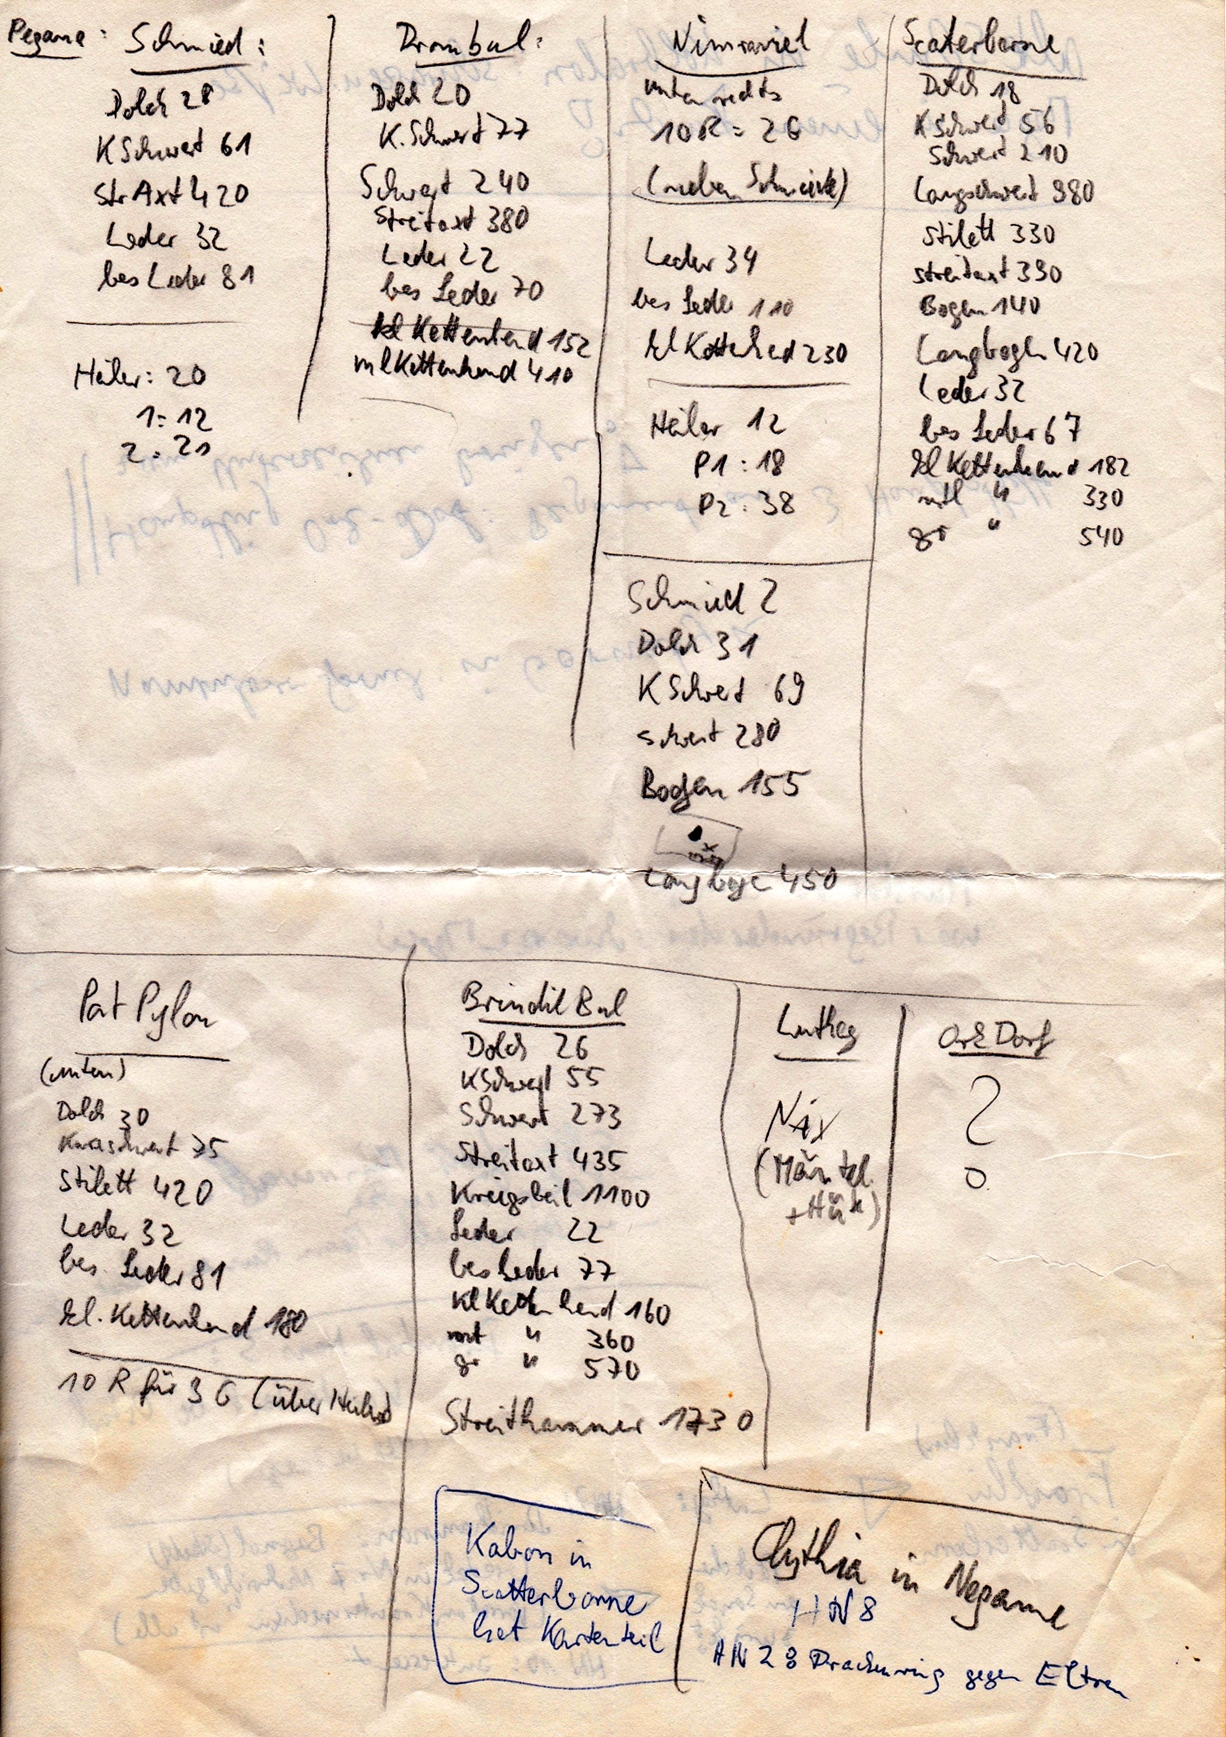 Pegane:
Schmied:
Dolch 28
K Schwert 61
Str Axt 420
Leder 32
bes Leder 81
Heiler: 20
1: 12
2: 21
Drombal:
Dolch 20
K. Schwert 77
Schwert 240
Streitaxt 380
Leder 22
bes Leder 70
kl Kettenhend 152
ml Kettenhend 410
Nimraviel
unten rechts
10 R = 26
(neben Schmiede)
Leder 34
bes Leder 110
kl Kettenhed 230
Heiler 12
P1: 18
P2: 38
Schmied 2
Dolch 31
K Schwert 69
Schwert 280
Bogen 155
Langboge 450
Scaterborne
Dolch 18
K Schwert 56
Schwert 210
Langschwert 980
Stilett 330
Streitaxt 390
Bogen 140
Langbogen 420
Leder 32
bes Leder 67
kl Kettenhemd 182
mtl " 330
gr " 540
Pat Pylon
(unten)
Dolch 30
Kurzschwert 75
Stilett 420
Leder 32
bes. Leder 81
kl. Kettenhend 180
10 R für 3 G (über Heiler)
Brindil Bul
Dolch 26
K Schwert 55
Schwert 273
Streitaxt 435
Kreigsbeil 1100
Leder 22
bes Leder 77
kl Kettenhend 160
mt " 360
gr " 570
Streithammer 1730
Ork Dorf
?
Nix
(Mäntel
+ Hüte)
Kabon in
Scatterborne
hat Kartenteil
Clythia in Negane
HN 8
AN 28 Drachenring gegen Eltren